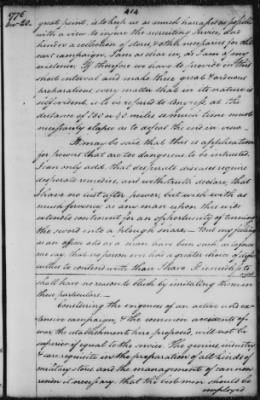 414
1776
Dec 20.
great point, is to keep us as much harassed as possible
with a view to injure the recruiting service, and
hinder a collection of stores, & other necessaries for the
next campaign, I am as clear in, as I am of my
existence. If therefore we have to provide in this
short interval and make these great & arduous
preparations, every matter that in its nature is
self evident, is to be referred to Congress, at the
distance of 130 or 40 miles, so much time must
necessarily elapse as to defeat the end in view.
It may be said that this is application
for powers that are too dangerous to be intrusted.
I can only add, that desperate diseases require
desperate remedies, and with truth declare, that
I have no lust after power, but wish with as
much fervency as any man upon this wide
extended continent for an opportunity of turning
the sword into a plough share — But my feelings
as an officer and as a man have been such, as to force
me say, that no person ever had a greater choice of diffi
culties to contend with than I have
shall have no reason to blush by
their particulars. —
Considering the exigences of an active and ex
tensive campaign, & the common accidents of
war the establishment here proposed, will not be
superior of equal to the service. The genius, industry
& care requisite in the preparation of all kinds of
military stores and the management of cannon
render it necessary that the best men should be
employed